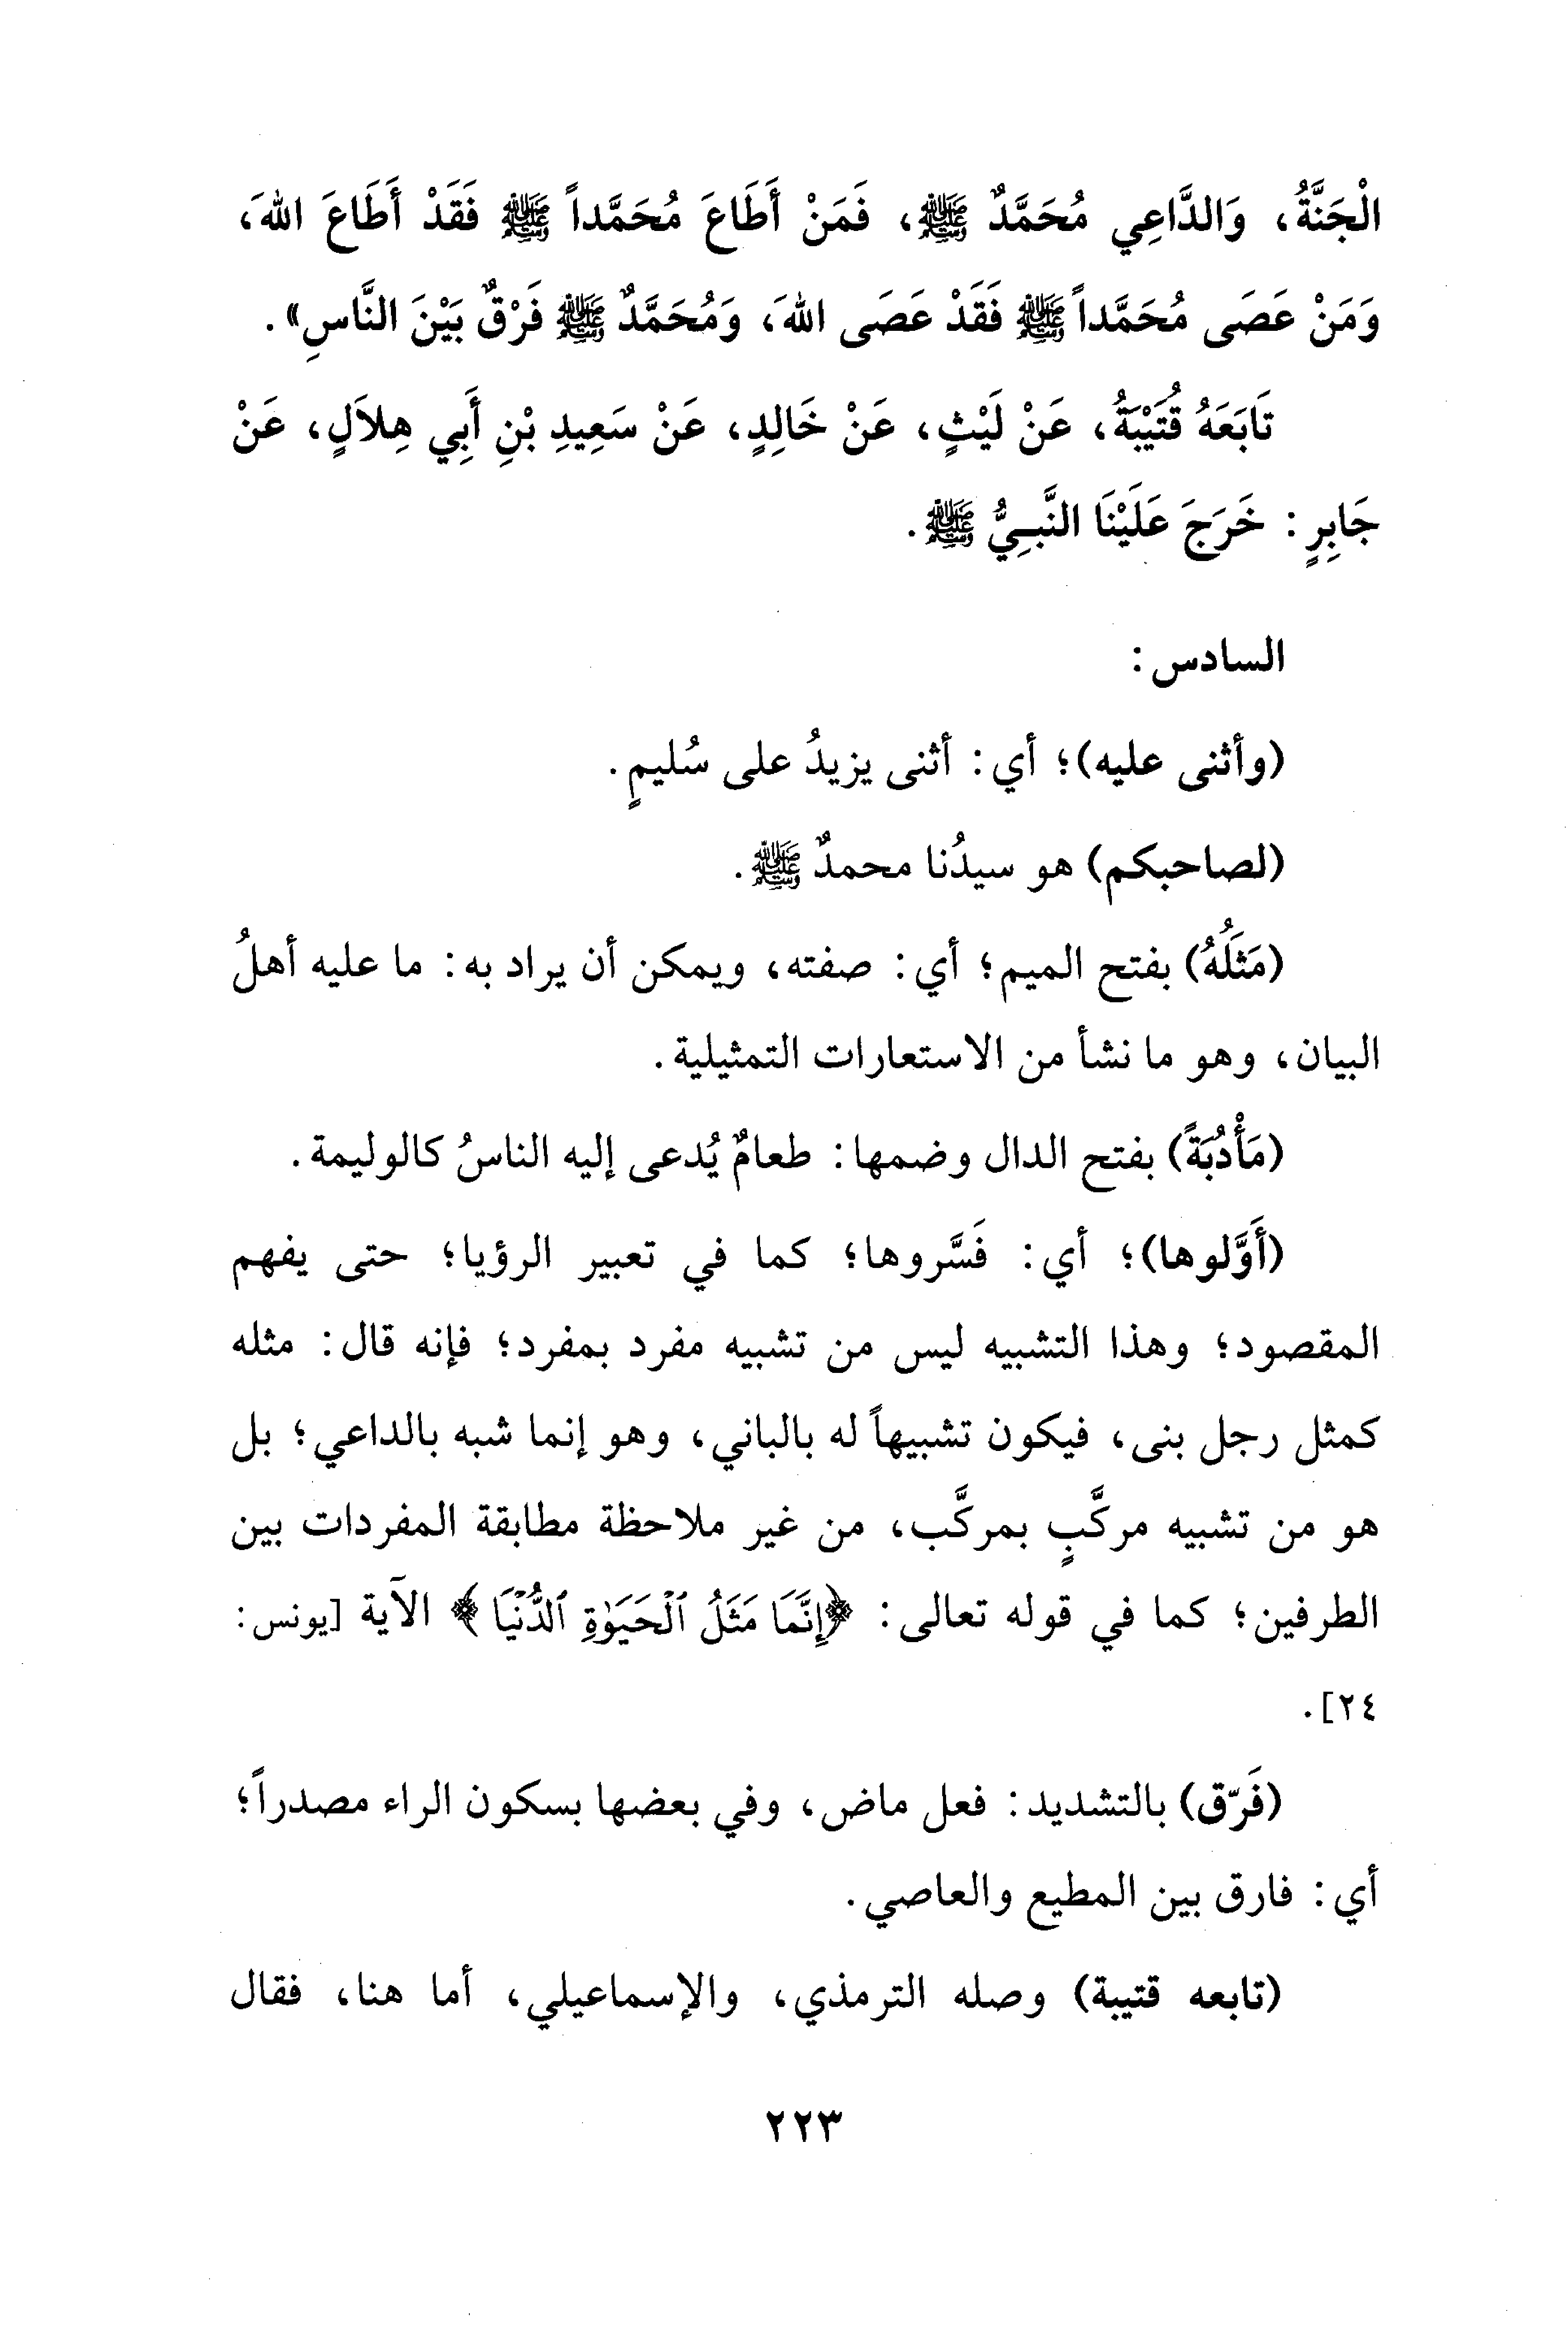 الْجَنَّةُ، وَالدَّاعِي مُحَمَّدٌ ﷺ، فَمَنْ أَطَاعَ مُحَمَّداً ﷺ فَقَدْ أَطَاعَ اللهَ،
وَمَنْ عَصَى مُحَمَّداً ﷺ فَقَدْ عَصَى اللهَ، وَمُحَمَّدٌ ﷺ فَرْقٌ بَيْنَ النَّاسِ».
تَابَعَهُ قُتَيْبَةُ، عَنْ لَيْثٍ، عَنْ خَالِدٍ، عَنْ سَعِيدِ بْنِ أَبِي هِلاَلٍ، عَنْ
جَابِرٍ: خَرَجَ عَلَيْنَا النَّبِيُّ ﷺ.
السادس:
(وأثنى عليه)؛ أي: أثنى يزيدُ على سُليمٍ.
(لصاحبكم) هو سيدُنا محمدٌ ﷺ.
(مَثَلُهُ) بفتح الميم؛ أي: صفته، ويمكن أن يراد به: ما عليه أهلُ
البيان، وهو ما نشأ من الاستعارات التمثيلية.
(مَأْدُبَةً) بفتح الدال وضمها: طعامٌ يُدعى إليه الناسُ كالوليمة.
(أَوَّلوها)؛ أي: فَسَّروها؛ كما في تعبير الرؤيا؛ حتى يفهم
المقصود؛ وهذا التشبيه ليس من تشبيه مفرد بمفرد؛ فإنه قال: مثله
كمثل رجل بنى، فيكون تشبيهاً له بالباني، وهو إنما شبه بالداعي؛ بل
هو من تشبيه مركَّبٍ بمركَّب، من غير ملاحظة مطابقة المفردات بين
الطرفين؛ كما في قوله تعالى: ﴿إِنَّمَا مَثَلُ ٱلْحَيَوٰةِ ٱلدُّنْيَا﴾ الآية [يونس:
٢٤].
(فَرّق) بالتشديد: فعل ماض، وفي بعضها بسكون الراء مصدراً؛
أي: فارق بين المطيع والعاصي.
(تابعه قتيبة) وصله الترمذي، والإسماعيلي، أما هنا، فقال
٢٢٣